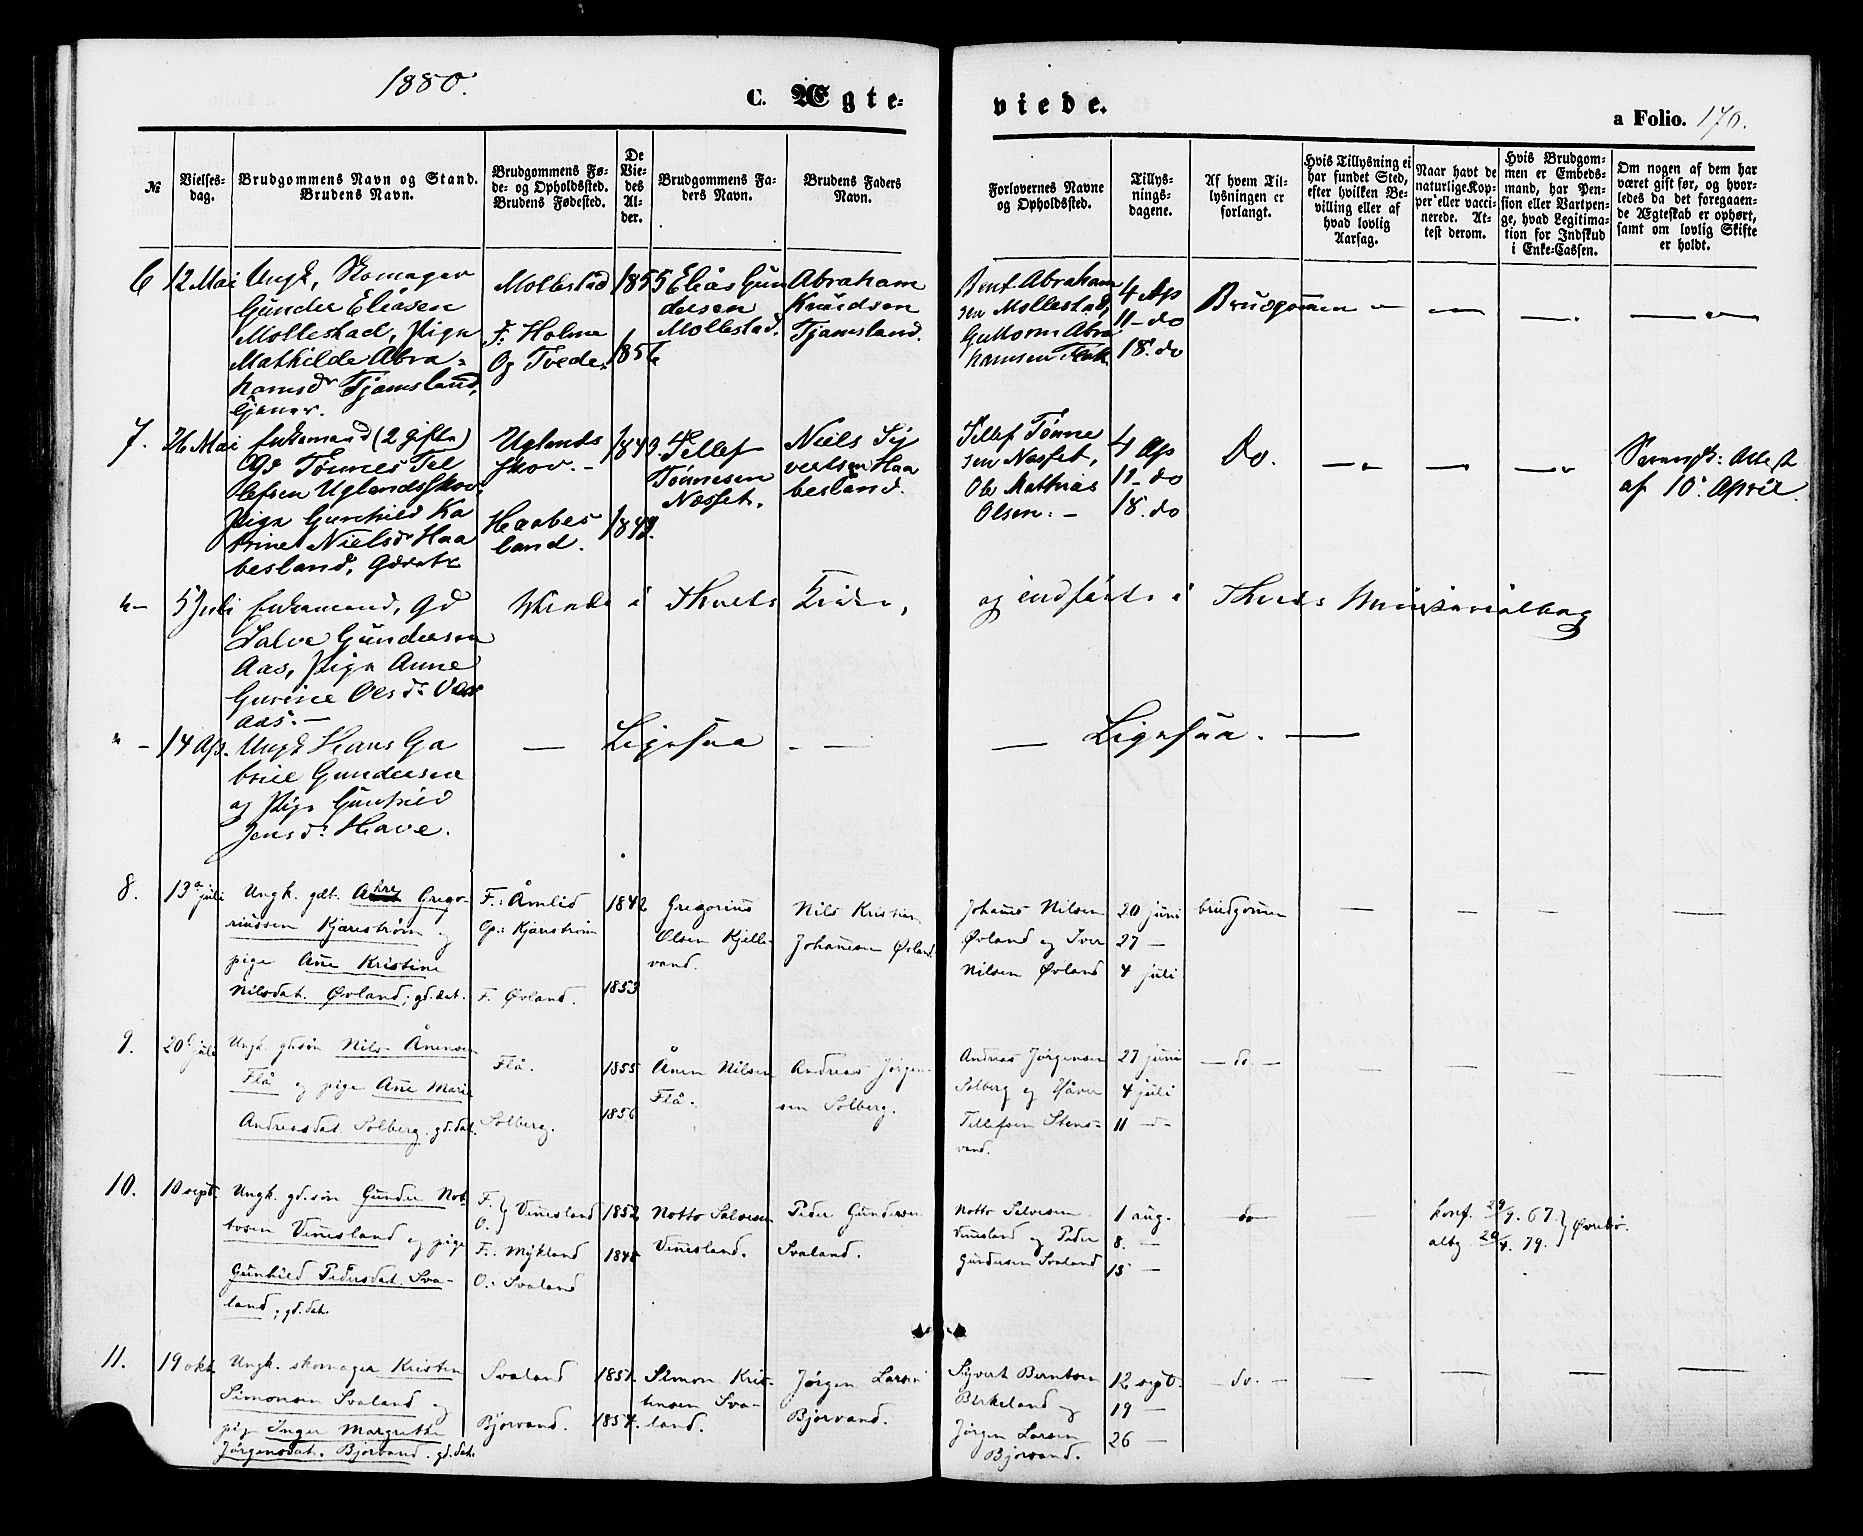 1880.
C. Ægte-
viede.
a Folio. 170.
№
Vielses-
dag.
Brudgommens Navn og Stand.
Brudens Navn.
Brudgommens Fø-
de- og Opholdssted.
Brudens Fødested.
De
Vie-
des
Al-
der.
Brudgommens Fa-
ders Navn.
Brudens Faders
Navn.
Forlovernes Navne
og Opholdssted.
Tillys-
nings-
dagene.
Af hvem Til-
lysningen er
forlangt.
Hvis Tillysning ei
har fundet Sted,
efter hvilken Be-
villing eller af
hvad lovlig
Aarsag.
Naar havt de
naturlige Kop-
per eller vacci-
nerede. At-
test derom.
Hvis Brudgom-
men er Embeds-
mand, har Pen-
sion eller Vartpen-
ge, hvad Legitima-
tion for Indskud
i Enke-Cassen.
Om nogen af dem har
været gift før, og hvor-
ledes da det foregaaen-
de Ægteskab er ophørt,
samt om lovlig Skifte
er holdt.
6
12 Mai
Ungk, Skomager
Gunder Eliasen
Mollestad, Pige
Mathilde Abra-
hamsdr Tjamsland,
Mollestad
F: Holme
Og Tvede.
1855
1856
Elias Gun
dersen
Mollestad.
Abraham
Knudsen
Tjamsland.
Bent Abraham
sen Mollestad,
Guttorm Abra
hamsen
4 Ap
11- do
18. do
Brudgommen
7.
26 Mai
Enkemand (2 gifte)
Gd Tønnes Tel
lefsen Uglandsskov,
Pige Gunhild Ka
trine Nielsdr Haa
besland, Gdrdtr
Uglands
skov. -
Haabes
land.
1843.
1849.
Tellef
Tønnesen
Næsset.
Niels Sy
vertsen Haa
besland.
Tellef Tønne
sen Næsset,
Ole Mathias
Olsen. -
4 Ap
11- do
18. do
Do.
Attest
af 10. April.
5 Juli
Enkemand, Gd
Salve Gundersen
Aas, Pige Anne
Gurine Olsdr
aas. -
Viede i Thveits Kirke,
og indførte i Thveits Ministerialbog
14 Ap.
Ungk Hans Ga
briel Gundersen
og Pige Gunhild
Jensdr Have.
Ligesaa
Ligesaa.
8.
13 juli
Ungk. gdt. Ahre Grego-
riussen Kjærstrøm og
pige Ane Kristine
Nilsdat. Øvland, gd.dat.
F.: Åmlid
Op: Kjærstrøm
F. Øvland.
1842
1853
Gregorius
Olsen Kjelle-
vand.
Nils Kristian
Johannesen Øvland
Johannes Nilsen
Øvland og Iver
Nilsen Øvland
20 juni
27 -
4 juli
brudgommen
9.
20 juli
Ungk. gdsøn Nils Ånensen
Flå og pige Ane Marie
Andreasdat. Solberg. gd.dat.
Flå.
Solberg.
1855
1856
Ånen Nilsen
Flå.
Andreas Jørgen-
sen Solberg.
Andreas Jørgensen
Solberg og Håver
Tellefsen Stens-
vand.
27 juni
4 juli
11 -d-
- do. -
10.
10 sept.
Ungk. gd.søn Gunder Not-
tosen Vennesland og pige
Gunhild Pedersdat. Sva-
land, gd.dat.
F.
O. } Vennesland
F.: Mykland
O.: Svaland
1852
1848
Notto Salvesen
Vennesland.
Peder Gundersen
Svaland.
Notto Salvesen
Vennesland og Peder
Gundersen Svaland
1 aug.
8. -
15 -
do
konf. 29/9. 67. } Øvrebø.
altg. 20/4. 79.
11.
19 okt.
Ungk. skomager Kristen
Simonsen Svaland og
pige Inger Margrethe
Jørgensdat. Bjorvand. gd.dat.
Svaland
Bjorvand.
1851.
1854.
Simon Kris-
tensen Sva-
land.
Jørgen Larsen
Bjorvand.
Syvert Berntsen
Birkeland og
Jørgen Larsen
Bjorvand.
12 sept.
19 -
26 -
- do. -